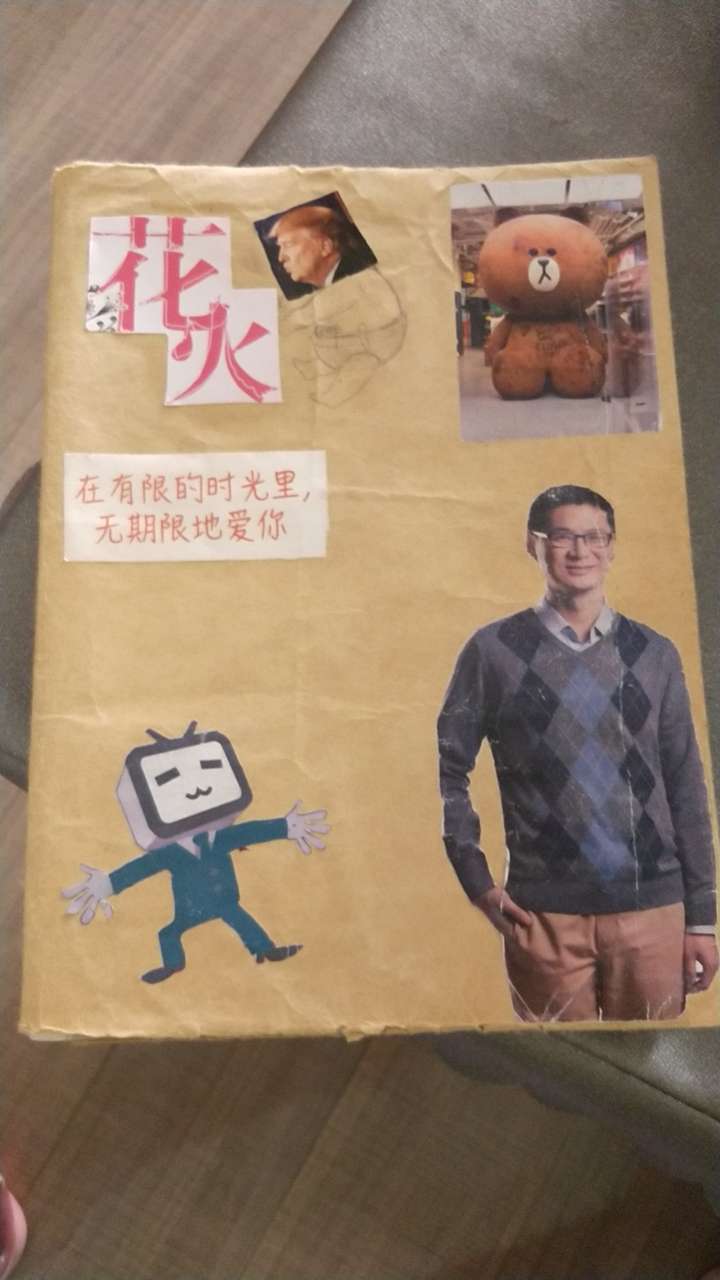 花火
在有限的时光里,
无期限地爱你